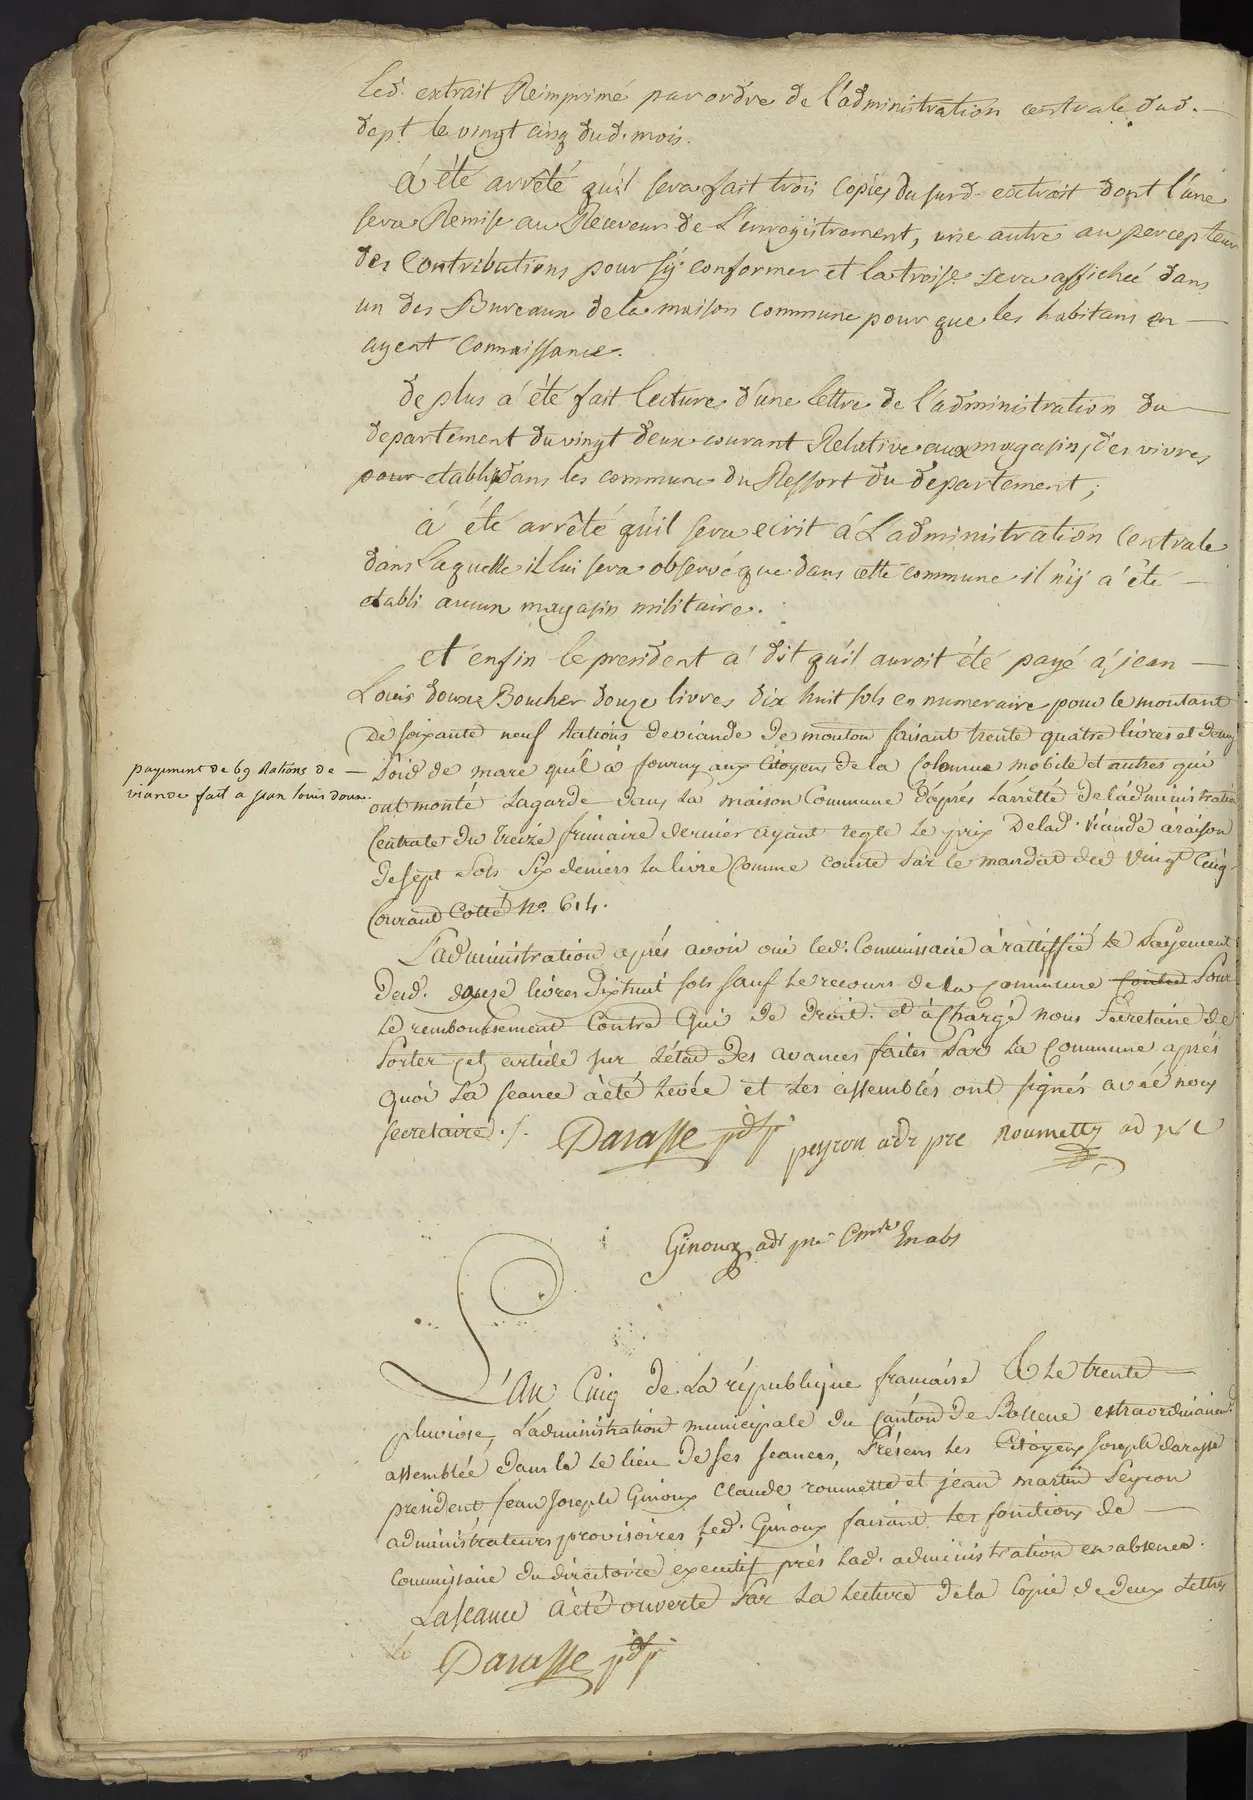 led. extrait Réimprimé par ordre de l'administration centrale dud.
dept. le vingt cinq dud. mois.
à été arrêté qu'il sera fait trois copies du surd. extrait dont l'une
sera Remise au Receveur de L'enregistrement, une autre au percepteur
des Contributions pour s'ÿ conformer et la troise. sera affichée dans
un des Bureaux de la maison commune pour que les habitans en
ayent connaissance.
de plus à été fait lecture d'une lettre de l'administration du
departement du vingt deux courant Relative aux magasins des vivres
pour etablis dans les commune du Ressort du departement;
à été arrêté qu'il sera ecrit à L'administration Centrale
dans laquelle il lui sera observé que dans cette commune il n'ij a été
etabli aucun magasin militaire.
et enfin le president à dit qu'il auroit été payé à jean
Louis doux Boucher douze livres dix huit sols en numeraire pour le montant
De soixante neuf Rations de viande de mouton faisant trente quatre livres et demy
payement de 69 Rations de
viande fait a jean louis doux.
Poid de marc qu'il à fourny aux Citoyens de la Colonne mobile et autres qui
ont monté Lagarde dans La maison Commune d'aprés L'arretté de l'administration
Centrale du treize frimaire dernier ayant reglé Le prix de lad. viande à raison
de sept sols six deniers la livre Comme conste Par le mandat du vingt cinq
Courant Cotté No. 614.
L'administration aprés avoir oui led. Commissaire à rattiffié Le Payement
desd. douze livres Dixhuit sols sauf Le recours de la commune contre Pour
Le remboursement Contre Qui de droit. et à Chargé nous Secretaire de
Porter cet article sur L'état des avances faites Par La Commune aprés
quoi La seance à été Levée et Les assemblés ont signés avec nous
secretaire./.
Darasse pdt peyron adr pre Roumette ad pre
Ginoux adr pre Cmre En abs
L'an Cinq de La république francaise & Le trente
pluviose, L'administration municipale du canton de Bollene extraordinairemt.
assemblée dans le Le lieu de ses seances, Présens Les Citoyens Joseph darasse
president Jean Joseph Ginoux Claude roumette et jean martin Peyron
administrateurs provisoires, Led. Ginoux faisant Les fonctions de
Commissaire du directoire executif prés Lad. administration en absence.
La seance à été ouverte Par La Lecture de la Copie de deux Lettres
Darasse pdt